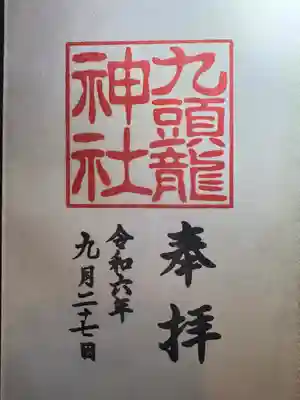 九頭龍
神社
奉拝
令和六年
九月二十七日